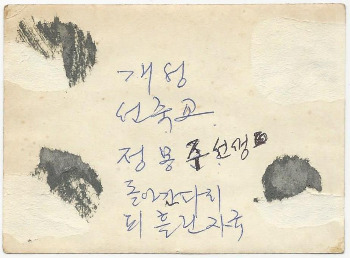 개성
선죽교
정몽주선생
돌아간다리
피흘린자국